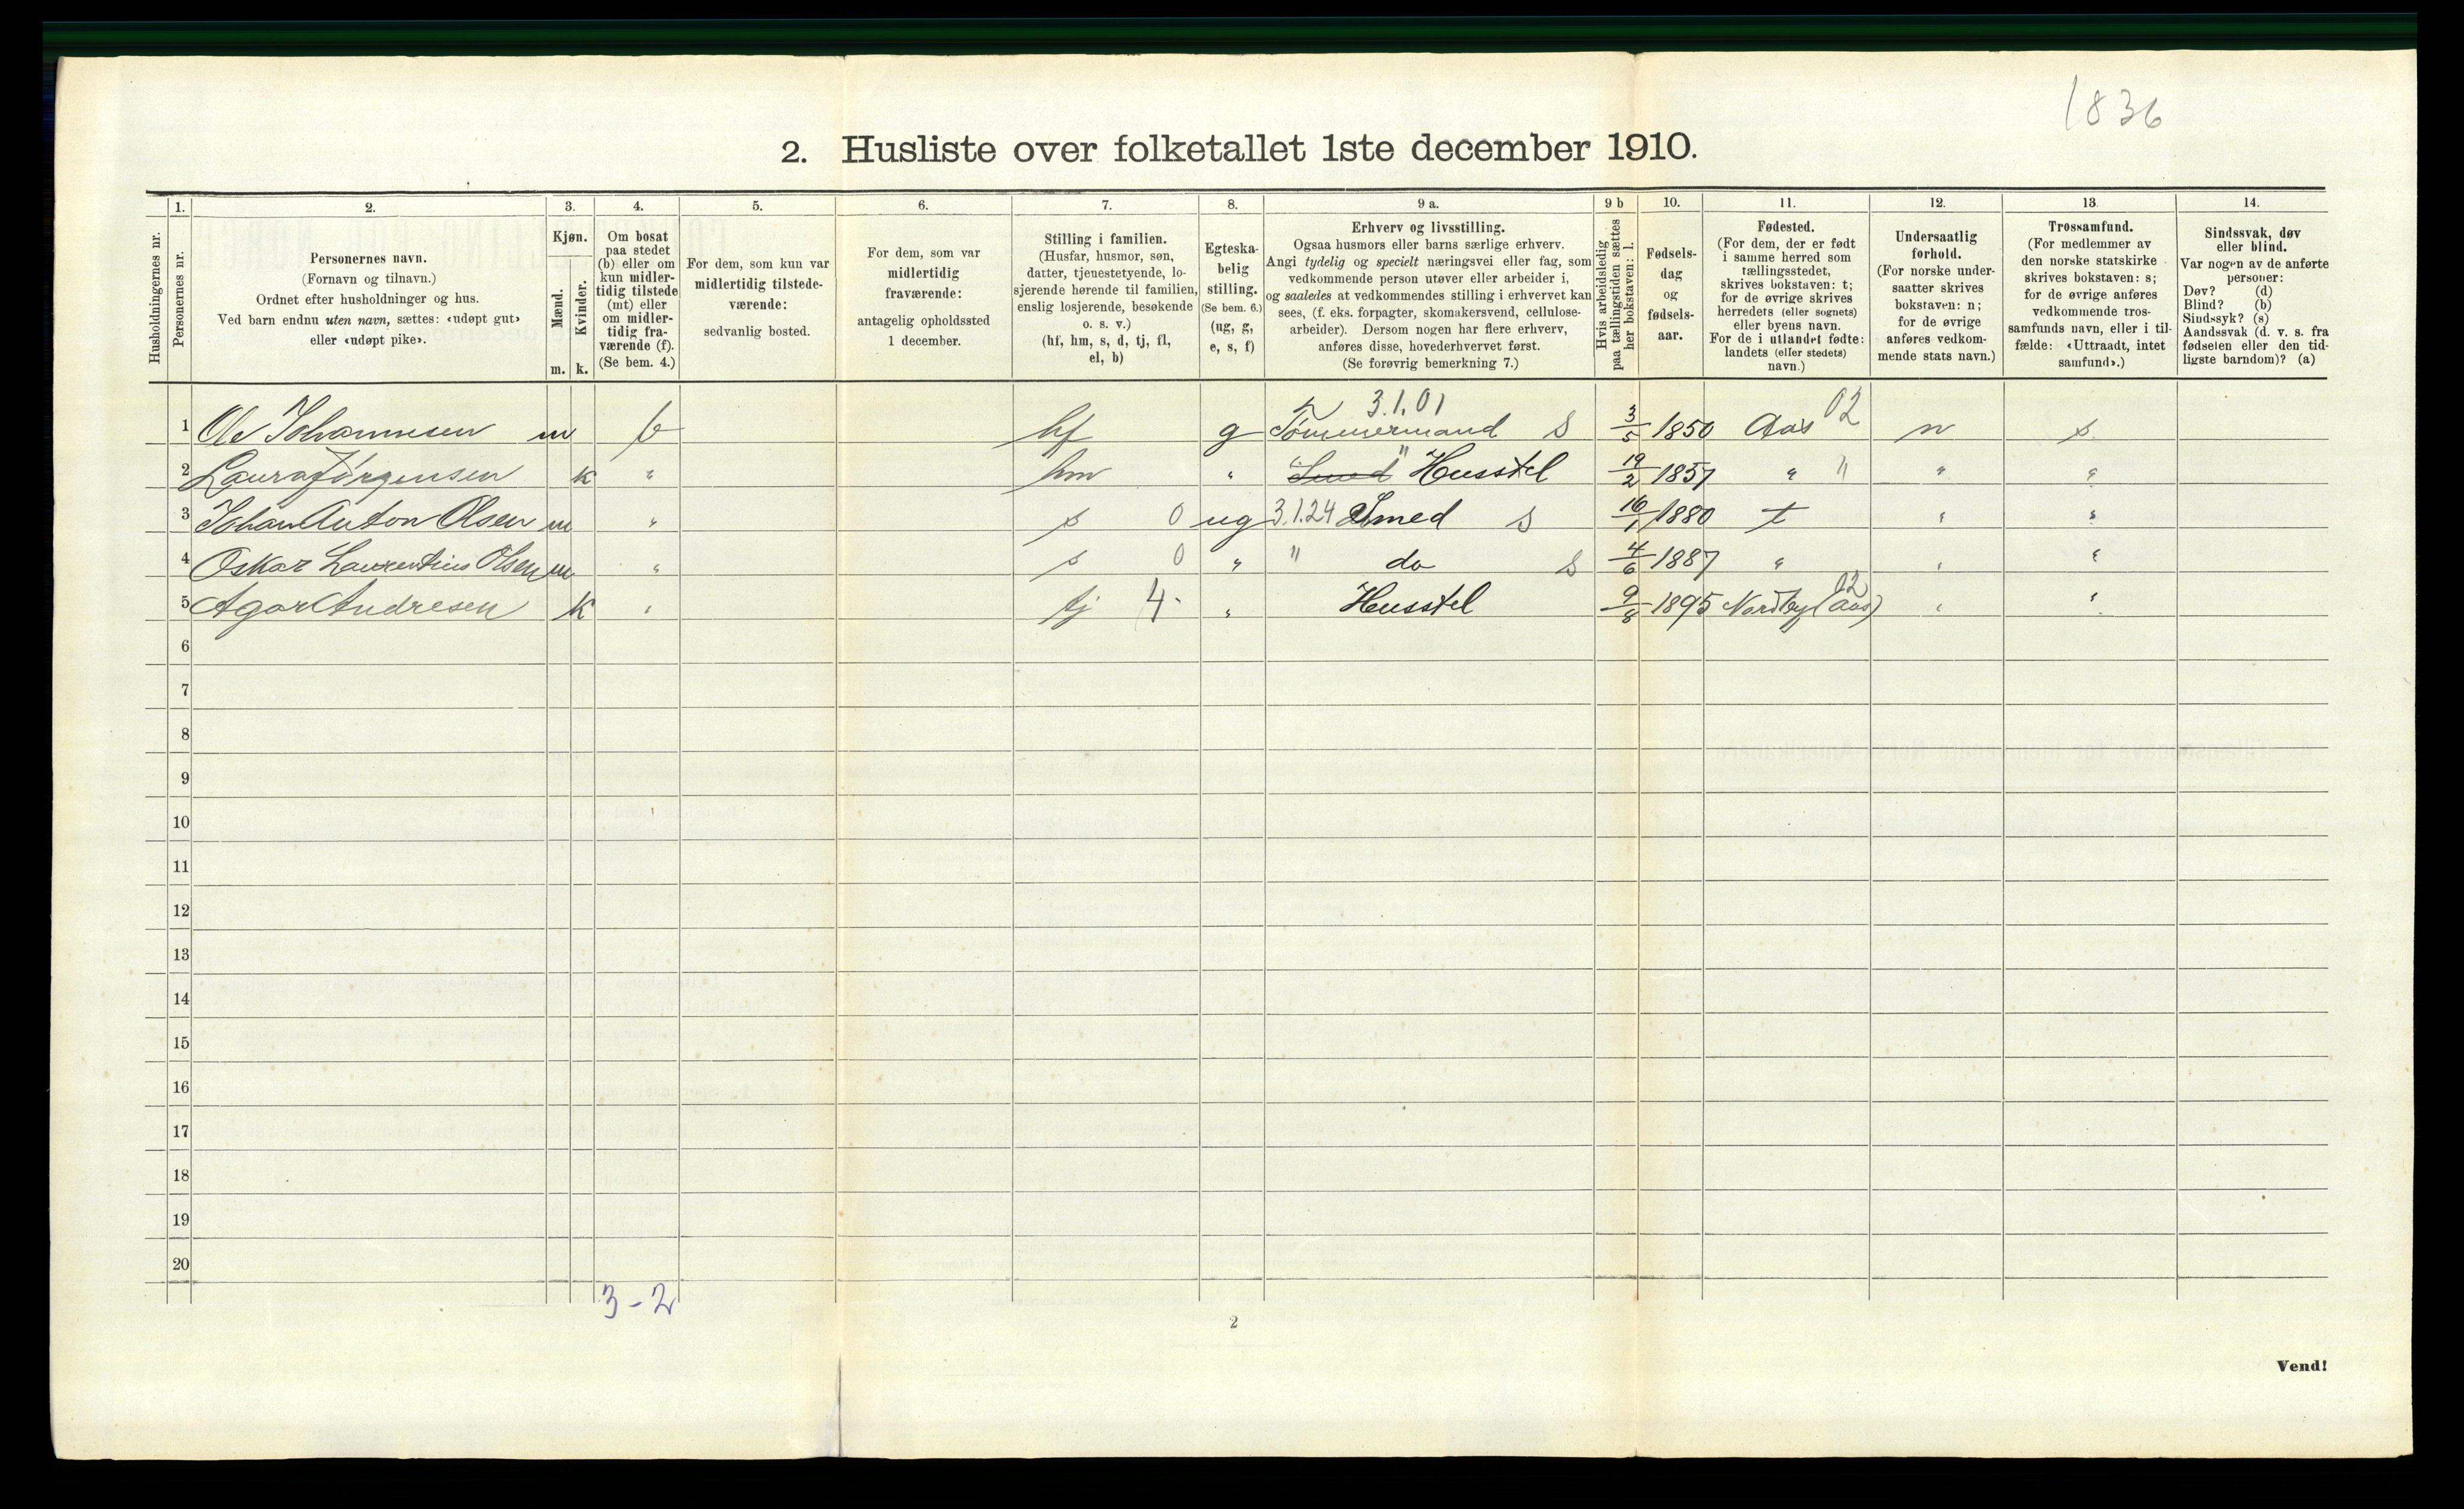 1836
2. Husliste over folketallet 1ste december 1910.
Husholdningernes nr.
1.
Personernes nr.
2.
Personernes navn.
(Fornavn og tilnavn.)
Ordnet efter husholdninger og hus.
Ved barn endnu uten navn, sættes: «udøpt gut»
eller «udøpt pike».
3.
Kjøn.
Mænd.
Kvinder.
m. k.
4.
Om bosat
paa stedet
(b) eller om
kun midler-
tidig tilstede
(mt) eller
om midler-
tidig fra-
værende (f).
(Se bem. 4.)
5.
For dem, som kun var
midlertidig tilstede-
værende:
sedvanlig bosted.
6.
For dem, som var
midlertidig
fraværende:
antagelig opholdssted
1 december.
7.
Stilling i familien.
(Husfar, husmor, søn,
datter, tjenestetyende, lo-
sjerende hørende til familien,
enslig losjerende, besøkende
o. s. v.)
(hf, hm, s, d, tj, fl,
el, b)
8.
Egteska-
belig
stilling.
(Se bem. 6.)
(ug, g,
e, s, f)
9 a.
Erhverv og livsstilling.
Ogsaa husmors eller barns særlige erhverv.
Angi tydelig og specielt næringsvei eller fag, som
vedkommende person utøver eller arbeider i,
og saaledes at vedkommendes stilling i erhvervet kan
sees, (f. eks. forpagter, skomakersvend, cellulose-
arbeider). Dersom nogen har flere erhverv,
anføres disse, hovederhvervet først.
(Se forøvrig bemerkning 7.)
9 b
Hvis arbeidsledig
paa tællingstiden sættes
her bokstaven: l.
10.
Fødsels-
dag
og
fødsels-
aar.
11.
Fødested.
(For dem, der er født
i samme herred som
tællingsstedet,
skrives bokstaven: t;
for de øvrige skrives
herredets (eller sognets)
eller byens navn.
For de i utlandet fødte:
landets (eller stedets)
navn.)
12.
Undersaatlig
forhold.
(For norske under-
saatter skrives
bokstaven: n;
for de øvrige
anføres vedkom-
mende stats navn.)
13.
Trossamfund.
(For medlemmer av
den norske statskirke
skrives bokstaven: s;
for de øvrige anføres
vedkommende tros-
samfunds navn, eller i til-
fælde: «Uttraadt, intet
samfund».)
14.
Sindssvak, døv
eller blind.
Var nogen av de anførte
personer:
Døv? (d)
Blind? (b)
Sindssyk? (s)
Aandssvak (d. v. s. fra
fødselen eller den tid-
ligste barndom)? (a)
3.1.01 02
1 Ole Johannesen m b hf g Tømmermand S 3/5 1850 Aas n s
2 Laura Jørgensen k " hm " Smed Husstel 19/2 1857 " " " "
3 Johan Anton Olsen m " s 0 ug 3.1.24 Smed S 16/1 1880 t " "
4 Oskar Laurentius Olsen m " s 0 " " do S 4/6 1887 " " "
5 Agar Andresen k " tj 4- " Husstel 9/8 1895 Nordby (Aas) 02 " "
6
7
8
9
10
11
12
13
14
15
16
17
18
19
20
3-2
2
Vend!